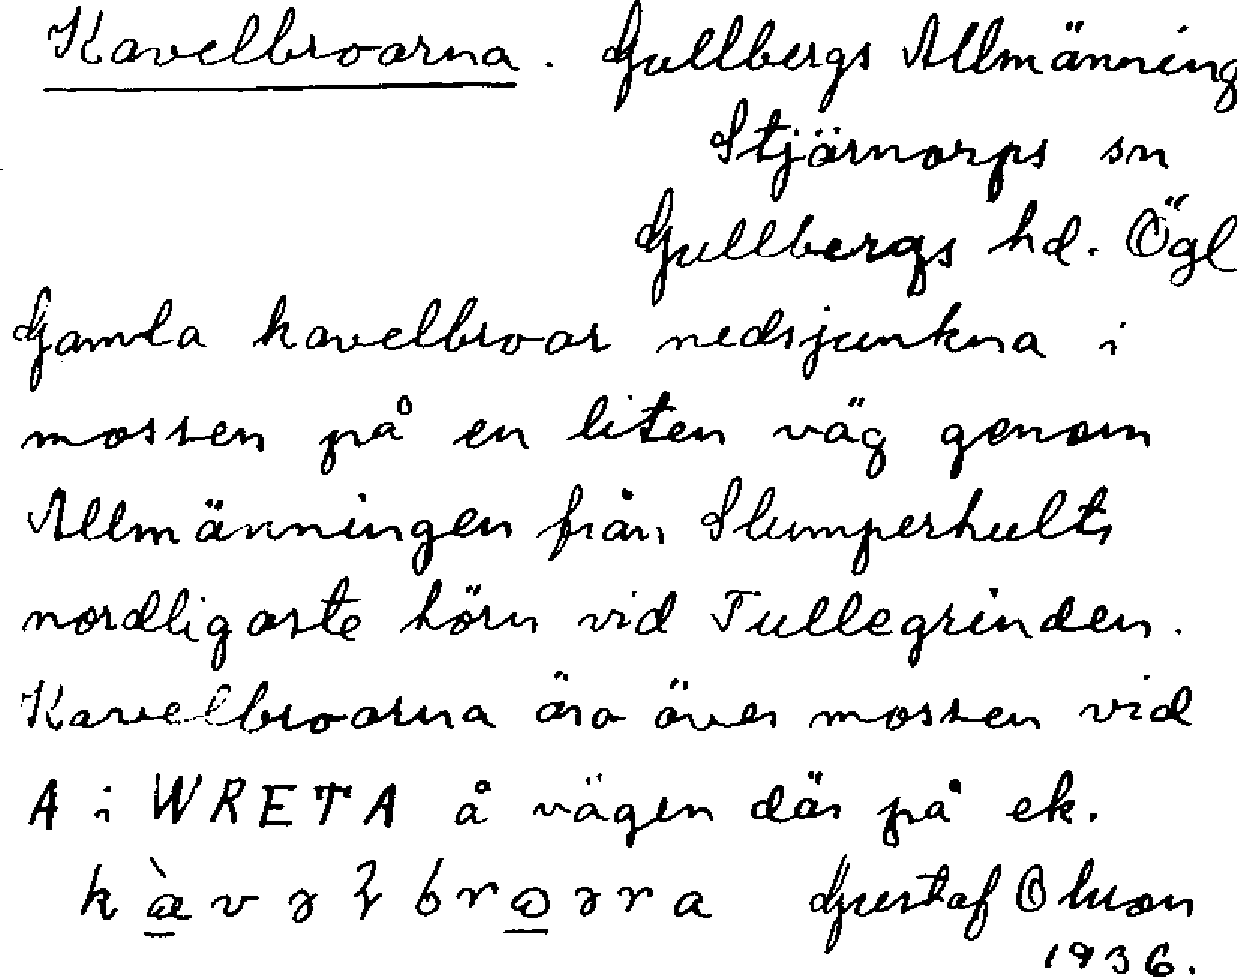 Kavelbroarna. Gullbergs Allmänning
Stjärnorps sn
Gullbergs hd. Ögl
Gamla kavelbroar nedsjunkna i
mossen på en liten väg genom
Allmänningen från Slumperhults
nordligaste hörn vid Tullegrinden.
Kavelbroarna äro över mossen vid
A i WRETA å vägen där på ek.
Gustaf Olson
1936.